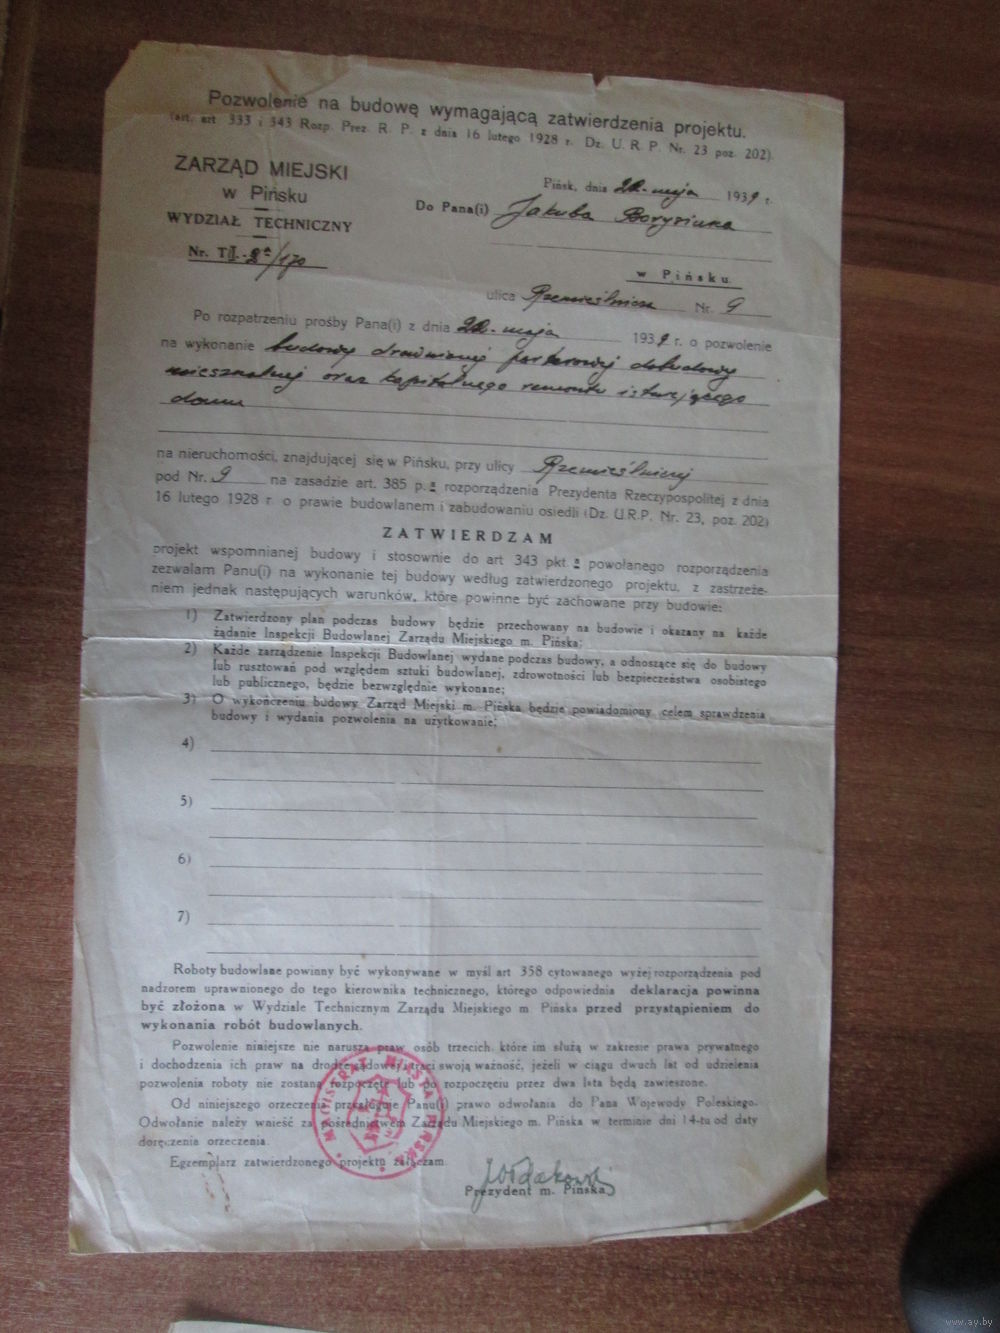 Pozwolenie na budowę wymagającą zatwierdzenia projektu.
(art. art 333 i 343 Rozp. Prez. R. P. z dnia 16 lutego 1928 r. Dz. U. R. P. Nr. 23 poz. 202).
ZARZĄD MIEJSKI
w Pińsku
WYDZIAŁ TECHNICZNY
Nr. T
Pińsk, dnia maja 1939 r.
Do Pana(i) Jakuba Borysiuka
w Pińsku.
ulica Rzemieślnicza Nr. 9
Po rozpatrzeniu prośby Pana(i) z dnia maja 1939 r. o pozwolenie
na wykonanie budowy drewnianej parterowej dobudowy
mieszkalnej oraz kapitalnego remontu istniejącego
domu
na nieruchomości, znajdującej się w Pińsku, przy ulicy Rzemieślniczej
pod Nr. 9 na zasadzie art. 385 p. a rozporządzenia Prezydenta Rzeczypospolitej z dnia
16 lutego 1928 r. o prawie budowlanem i zabudowaniu osiedli (Dz. U.R.P. Nr. 23, poz. 202)
ZATWIERDZAM
projekt wspomnianej budowy i stosownie do art 343 pkt. a powołanego rozporządzenia
zezwalam Panu(i) na wykonanie tej budowy według zatwierdzonego projektu, z zastrzeże-
niem jednak następujących warunków, które powinne być zachowane przy budowie:
1) Zatwierdzony plan podczas budowy będzie przechowany na budowie i okazany na każde
żądanie Inspekcji Budowlanej Zarządu Miejskiego m. Pińska;
2) Każde zarządzenie Inspekcji Budowlanej wydane podczas budowy, a odnoszące się do budowy
lub rusztowań pod względem sztuki budowlanej, zdrowotności lub bezpieczeństwa osobistego
lub publicznego, będzie bezwzględnie wykonane;
3) O wykończeniu budowy Zarząd Miejski m. Pińska będzie powiadomiony celem sprawdzenia
budowy i wydania pozwolenia na użytkowanie;
4)
5)
6)
7)
Roboty budowlane powinny być wykonywane w myśl art 358 cytowanego wyżej rozporządzenia pod
nadzorem uprawnionego do tego kierownika technicznego, którego odpowiednia deklaracja powinna
być złożona w Wydziale Technicznym Zarządu Miejskiego m Pińska przed przystąpieniem do
wykonania robót budowlanych.
Pozwolenie niniejsze nie narusza praw osób trzecich, które im służą w zakresie prawa prywatnego
i dochodzenia ich praw na drodze sądowej i traci swoją ważność, jeżeli w ciągu dwuch lat od udzielenia
pozwolenia roboty nie zostaną rozpoczęte lub po rozpoczęciu przez dwa lata będą zawieszone.
Od niniejszego orzeczenia przysługuje Panu(i) prawo odwołania do Pana Wojewody Poleskiego.
Odwołanie należy wnieść za pośrednictwem Zarządu Miejskiego m. Pińska w terminie dni 14-tu od daty
doręczenia orzeczenia.
Egzemplarz zatwierdzonego projektu załączam
MAGISTRAT MIASTA PIŃSKA
Prezydent m. Pińska
www.ay.by